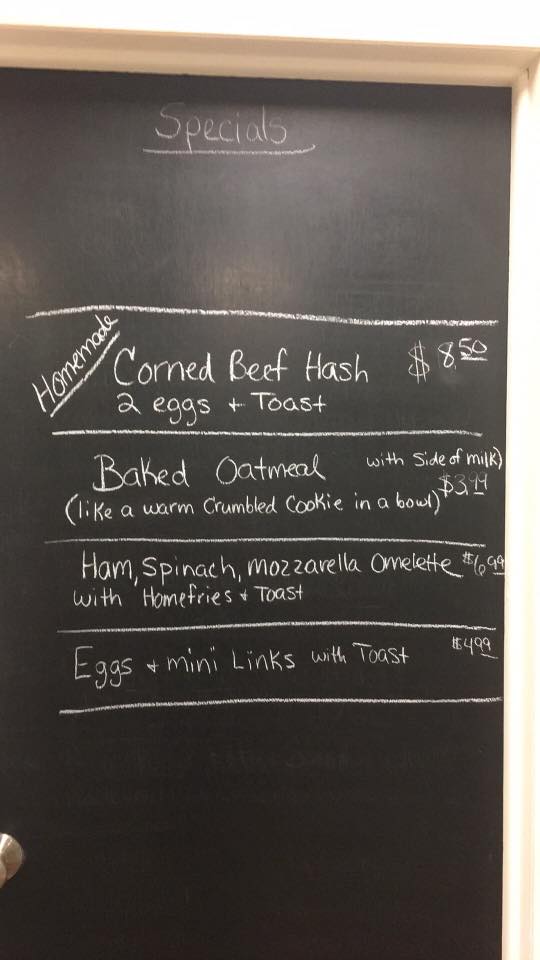 Specials
Homemade
Corned Beef Hash $8.50
2 eggs + Toast
Baked Oatmeal with Side of milk)
(like a warm Crumbled Cookie in a bowl) $3.99
Ham, Spinach, mozzarella Omelette $6.99
with Homefries + Toast
Eggs + mini Links with Toast $4.99